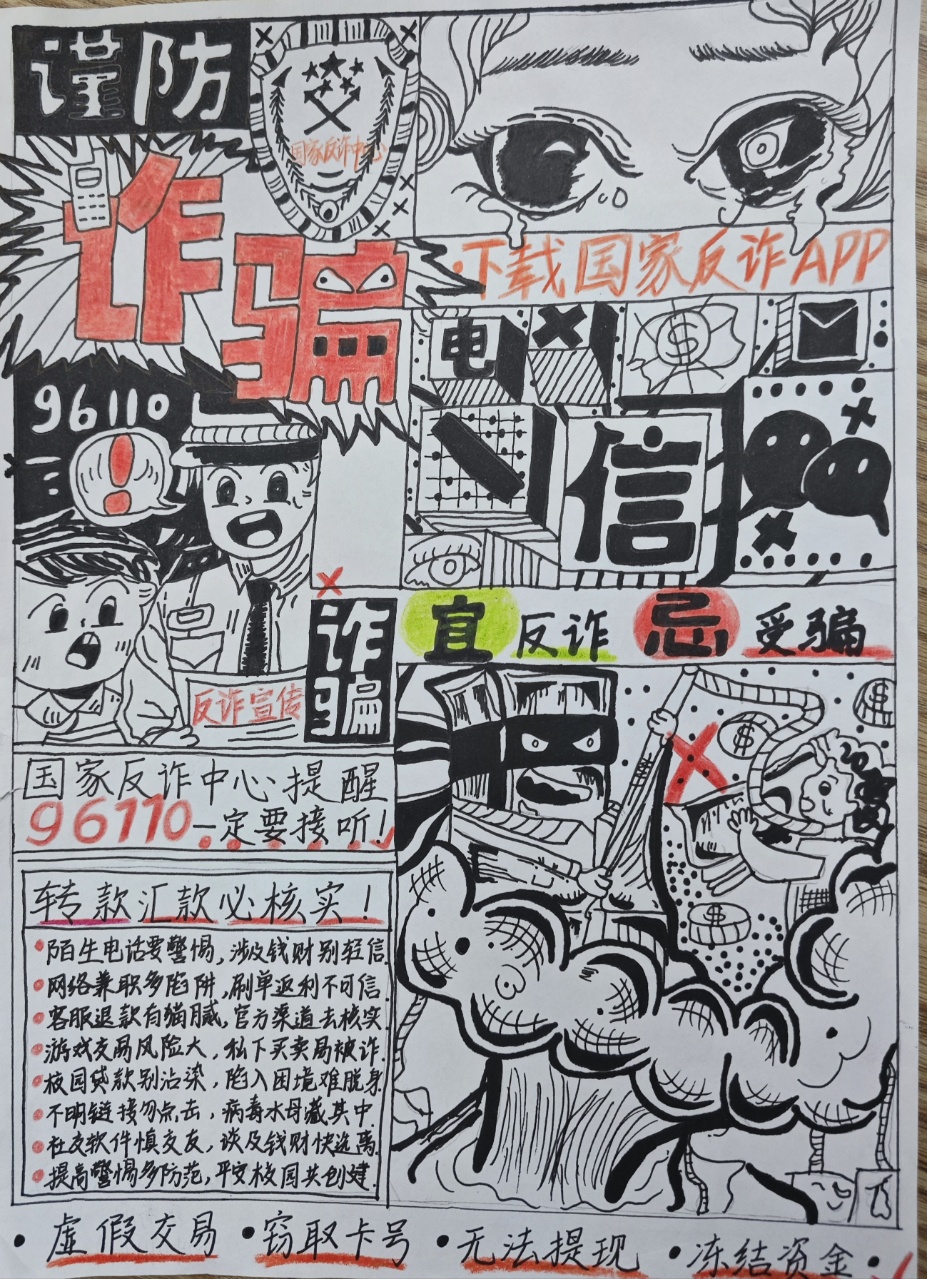 谨防
诈骗
国家反诈中心
·下载国家反诈APP
电
信
96110
反诈宣传
诈骗
宜反诈 忌受骗
国家反诈中心提醒
96110一定要接听!
转款汇款必核实!
陌生电话要警惕,涉及钱财别轻信.
网络兼职多陷阱,刷单返利不可信.
客服退款有猫腻,官方渠道去核实.
游戏交易风险大,私下买卖易被诈.
校园贷款别沾染,陷入困境难脱身
不明链接勿点击,病毒木母藏其中
社交软件慎交友,谈及钱财快逃离.
提高警惕多防范,平安校园共创建.
·虚假交易 ·窃取卡号 ·无法提现 ·冻结资金·